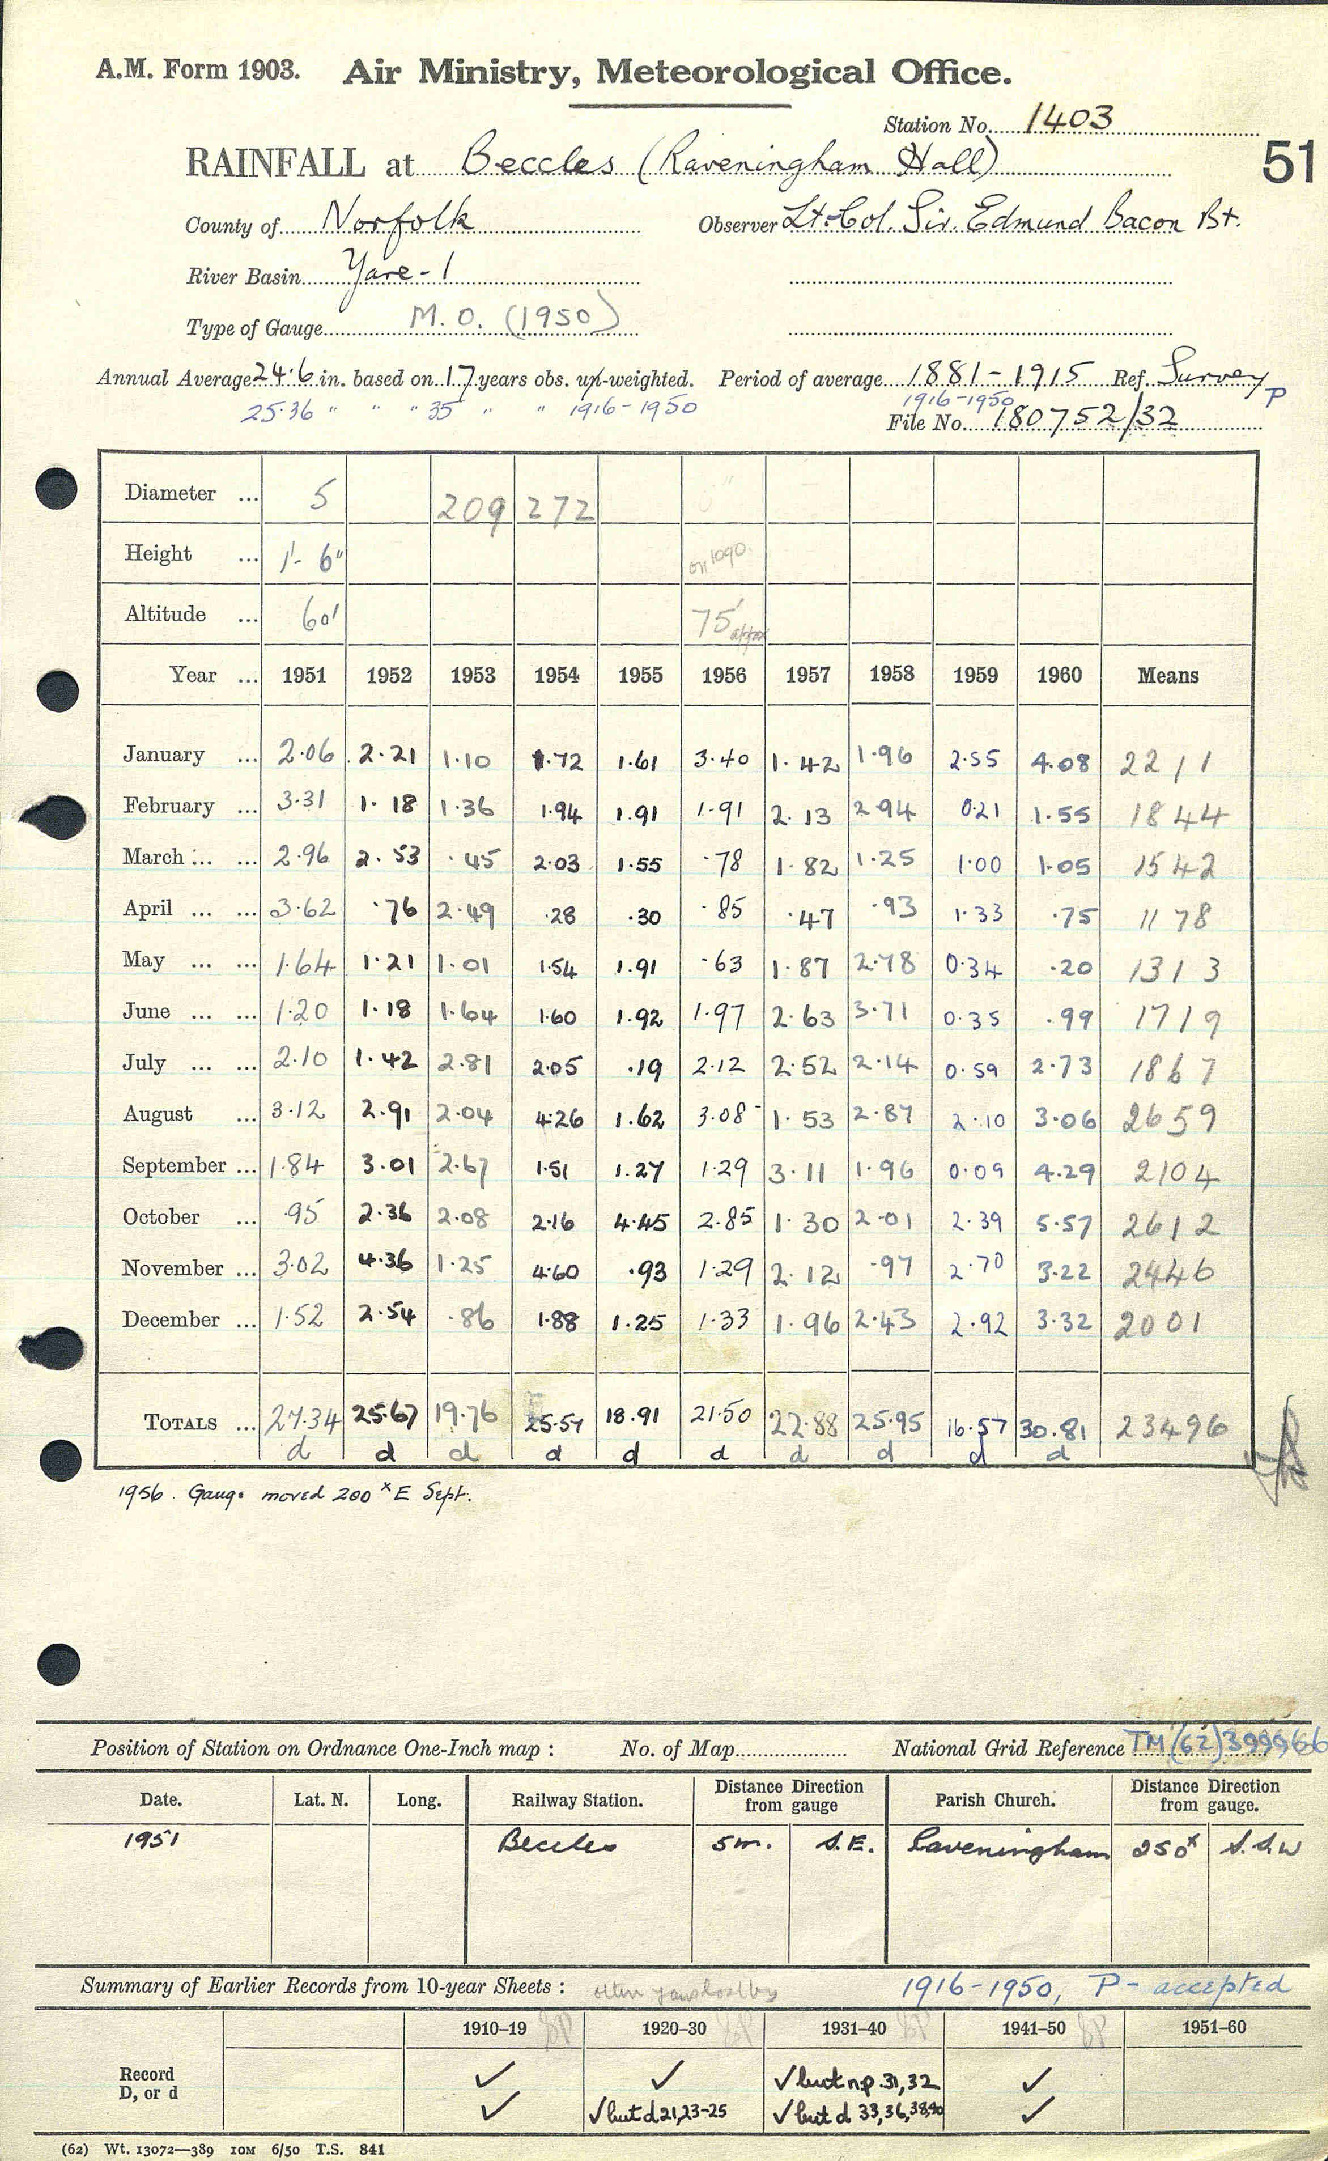 A.M. Form 1903. Air Ministry, Meteorological Office.
Station No. 1403
51
RAINFALL at Beccles (Raveningham Hall)
County of Norfolk Observer Lt. Col. Sir. Edmund Bacon Bt.
River Basin Yare-1
Type of Gauge M.O. (1950)
Annual Average 24.6 in. based on 17 years obs. un-weighted. Period of average 1881-1915 Ref. Survey P
25.36 " " " 35 " " 1916-1950 1916-1950
File No. 180752/32
Diameter ... 5 209 272
Height ... 1'-6"
Altitude ... 60' 75' approx
Year ... 1951 1952 1953 1954 1955 1956 1957 1958 1959 1960 Means
January ... 2.06 2.21 1.10 1.72 1.61 3.40 1.42 1.96 2.55 4.08 2211
February ... 3.31 1.18 1.36 1.94 1.91 1.91 2.13 2.94 0.21 1.55 1844
March ... ... 2.96 2.53 .45 2.03 1.55 .78 1.82 1.25 1.00 1.05 1542
April ... ... 3.62 .76 2.49 .28 .30 .85 .47 .93 1.33 .75 1178
May ... ... 1.64 1.21 1.01 1.54 1.91 .63 1.87 2.78 0.34 .20 1313
June ... ... 1.20 1.18 1.64 1.60 1.92 1.97 2.63 3.71 0.35 .99 1719
July ... ... 2.10 1.42 2.81 2.05 .19 2.12 2.52 2.14 0.59 2.73 1867
August ... 3.12 2.91 2.04 4.26 1.62 3.08 1.53 2.87 2.10 3.06 2659
September ... 1.84 3.01 2.67 1.51 1.27 1.29 3.11 1.96 0.09 4.29 2104
October ... .95 2.36 2.08 2.16 4.45 2.85 1.30 2.01 2.39 5.57 2612
November ... 3.02 4.36 1.25 4.60 .93 1.29 2.12 .97 2.70 3.22 2446
December ... 1.52 2.54 .86 1.88 1.25 1.33 1.96 2.43 2.92 3.32 2001
TOTALS ... 27.34 25.67 19.76 25.57 18.91 21.50 22.88 25.95 16.57 30.81 23496
d d d d d d d d d d
1956. Gauge moved 200 x E Sept.
Position of Station on Ordnance One-Inch map : No. of Map National Grid Reference TM (62) 399966
Date. Lat. N. Long. Railway Station. Distance Direction from gauge Parish Church. Distance Direction from gauge.
1951 Beccles 5m. S.E. Raveningham 250 x S.S.W
Summary of Earlier Records from 10-year Sheets : 1916-1950, P - accepted
1910-19 1920-30 1931-40 1941-50 1951-60
Record ✓ ✓ ✓ but n.p. 31, 32 ✓
D, or d ✓ ✓ but d 21, 23-25 ✓ but d 33, 36, 38, 40 ✓
(62) Wt. 13072—389 10M 6/50 T.S. 841